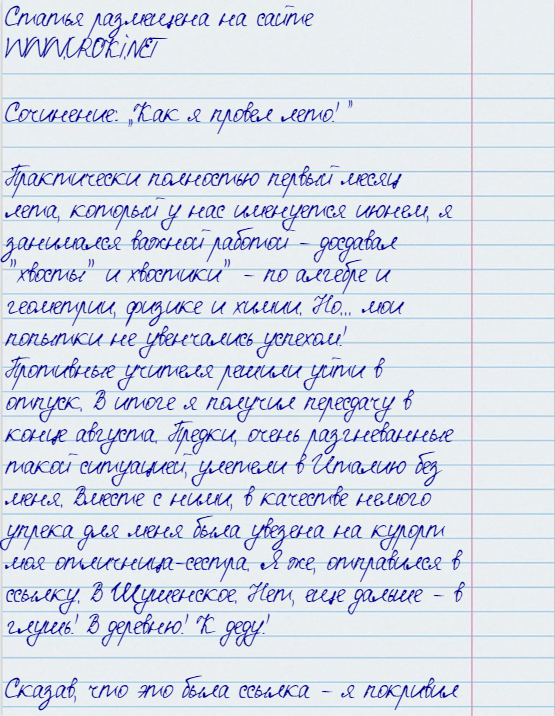 Статья размещена на сайте
WWW.UROKI.NET
Сочинение: „Как я провел лето!"
Практически полностью первый месяц
лета, который у нас именуется июнем, я
занимался важной работой – досдавал
"хвосты" и хвостики" – по алгебре и
геометрии, физике и химии. Но... мои
попытки не увенчались успехом!
Противные учителя решили уйти в
отпуск. В итоге я получил пересдачу в
конце августа. Предки, очень разгневанные
такой ситуацией, улетели в Италию без
меня. Вместе с ними, в качестве немого
упрека для меня была увезена на курорт
моя отличница-сестра. Я же, отправился в
ссылку. В Шушенское. Нет, еще дальше – в
глушь! В деревню! К деду!
Сказав, что это была ссылка – я покривил